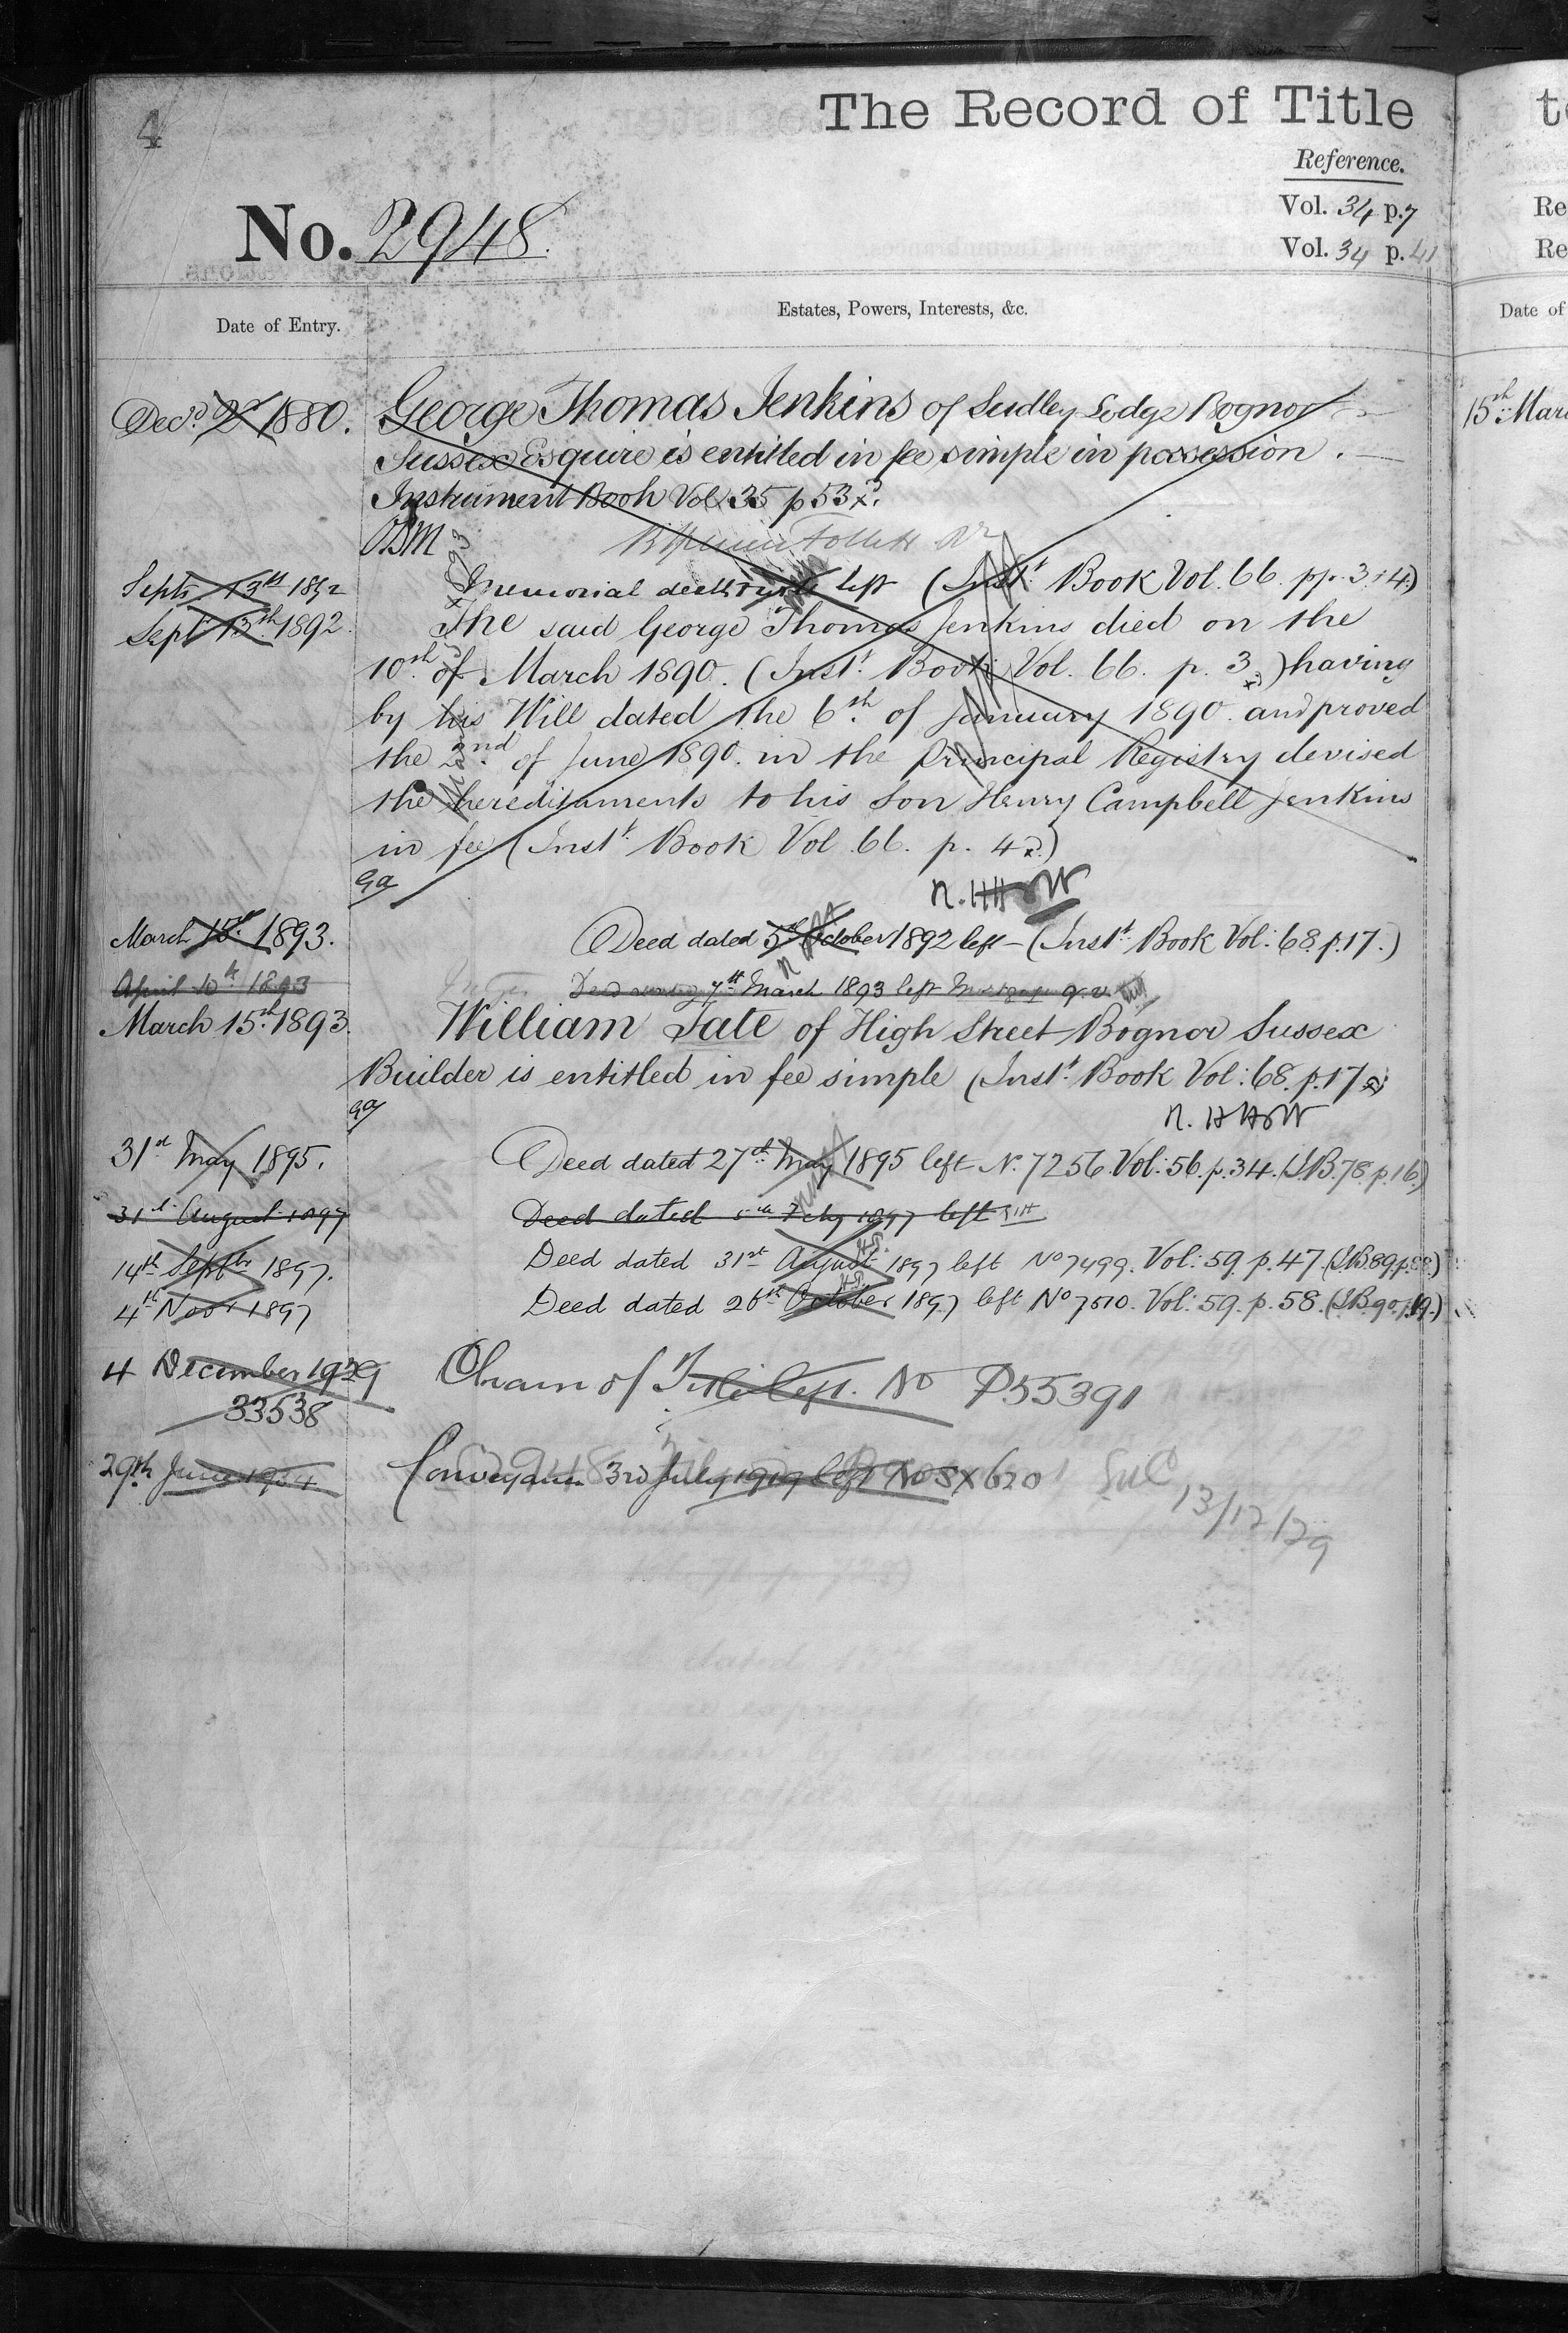 4
The Record of Title
Reference.
Vol. 34 p. 7
No. 2948.
Vol. 34 p. 41
Date of Entry.
Estates, Powers, Interests, &c.
Decr. 2d 1880. George Thomas Jenkins of Sudley Lodge Bognor
Sussex Esquire is entitled in fee simple in possession.
Instrument Book Vol. 35 p 53
Septr 13th 1892 Memorial left (Instt. Book Vol. 66. pp. 3 & 4)
Sept. 13th 1892. The said George Thomas Jenkins died on the
10th of March 1890. (Instt. Book Vol. 66. p. 3.) having
by his Will dated the 6th of January 1890. and proved
the 2nd of June 1890. in the Principal Registry devised
the hereditaments to his Son Henry Campbell Jenkins
in fee (Instt. Book Vol. 66. p. 4.)
March 15th 1893. Deed dated 5th October 1892 left (Instt. Book Vol: 68. p. 17.)
April 10th 1893 Deed 7th March 1893 left Mortgage
March 15th 1893. William Tate of High Street Bognor Sussex
Builder is entitled in fee simple (Instt. Book Vol: 68. p. 17
31st May 1895. Deed dated 27th May 1895 left No. 7256. Vol: 56. p. 34. (I.B. 78. p. 16.)
31st August 1897 Deed dated 1897 left
14th Septr 1897. Deed dated 31st August 1897 left No 7499. Vol: 59. p. 47. (I.B. 89. p.
4th Novr 1897 Deed dated 26th October 1897 left No 7510. Vol: 59. p. 58. (I.B. 90. p. 19.)
4 December 1929 Chain of Title left. No P55391
33538
29th June 1934 Conveyance 3rd July 1919 left No SX620
13/12/29
to
Re
Re
Date of
15th Marc